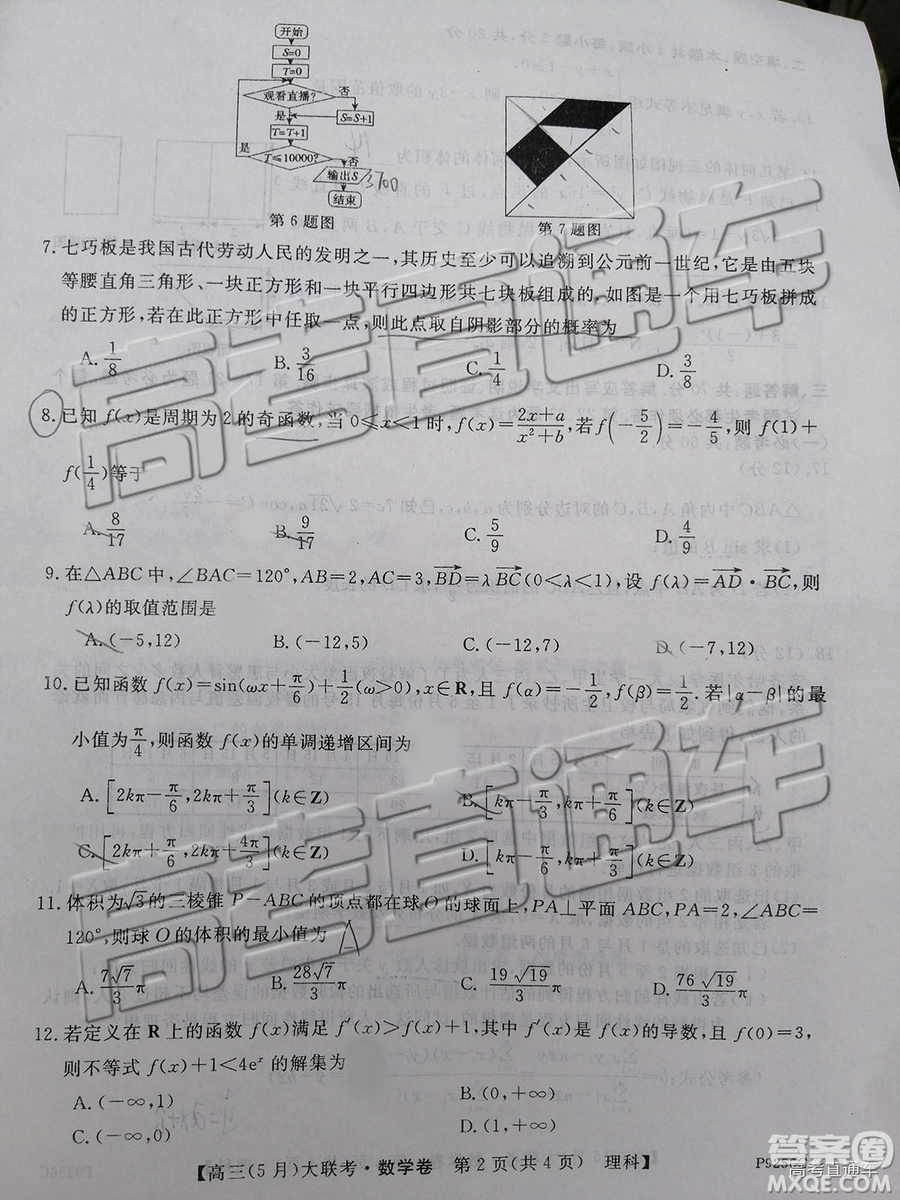 开始
S=0
T=0
观看直播?
否
是
S=S+1
T=T+1
是
T≤10000?
否
输出S
3700
结束
第6题图
第7题图
7.七巧板是我国古代劳动人民的发明之一,其历史至少可以追溯到公元前一世纪,它是由五块
等腰直角三角形、一块正方形和一块平行四边形共七块板组成的.如图是一个用七巧板拼成
的正方形,若在此正方形中任取一点,则此点取自阴影部分的概率为
A. 1/8 B. 3/16 C. 1/4 D. 3/8
8.已知 f(x)是周期为2的奇函数,当 0≤x≤1时,f(x)=(2x+a)/(x²+b),若f(-5/2)=-4/5,则 f(1)+
f(1/4)等于
A. 8/17 B. 9/17 C. 5/9 D. 4/9
9.在△ABC中,∠BAC=120°,AB=2,AC=3,BD→=λBC→(0<λ<1),设 f(λ)=AD→·BC→,则
f(λ)的取值范围是
A.(-5,12) B.(-12,5) C.(-12,7) D.(-7,12)
10.已知函数 f(x)=sin(ωx+π/6)+1/2(ω>0),x∈R,且 f(α)=-1/2,f(β)=1/2.若|α-β|的最
小值为π/4,则函数 f(x)的单调递增区间为
A.[2kπ-π/6,2kπ+π/3](k∈Z) B.[kπ-π/3,kπ+π/6](k∈Z)
C.[2kπ+π/6,2kπ+4π/3](k∈Z) D.[kπ-π/6,kπ+π/3](k∈Z)
11.体积为√3的三棱锥 P-ABC的顶点都在球O的球面上,PA⊥平面 ABC,PA=2,∠ABC=
120°,则球 O的体积的最小值为
A. 7√7/3 π B. 28√7/3 π C. 19√19/3 π D. 76√19/3 π
12.若定义在 R 上的函数 f(x)满足 f′(x)>f(x)+1,其中 f′(x)是 f(x)的导数,且 f(0)=3,
则不等式 f(x)+1<4eˣ的解集为
A.(-∞,1) B.(0,+∞)
C.(-∞,0) D.(1,+∞)
【高三(5月)大联考·数学卷 第2页(共4页) 理科】
高考直通车
高考直通车
答案圈
高考直通车
MXQE.COM